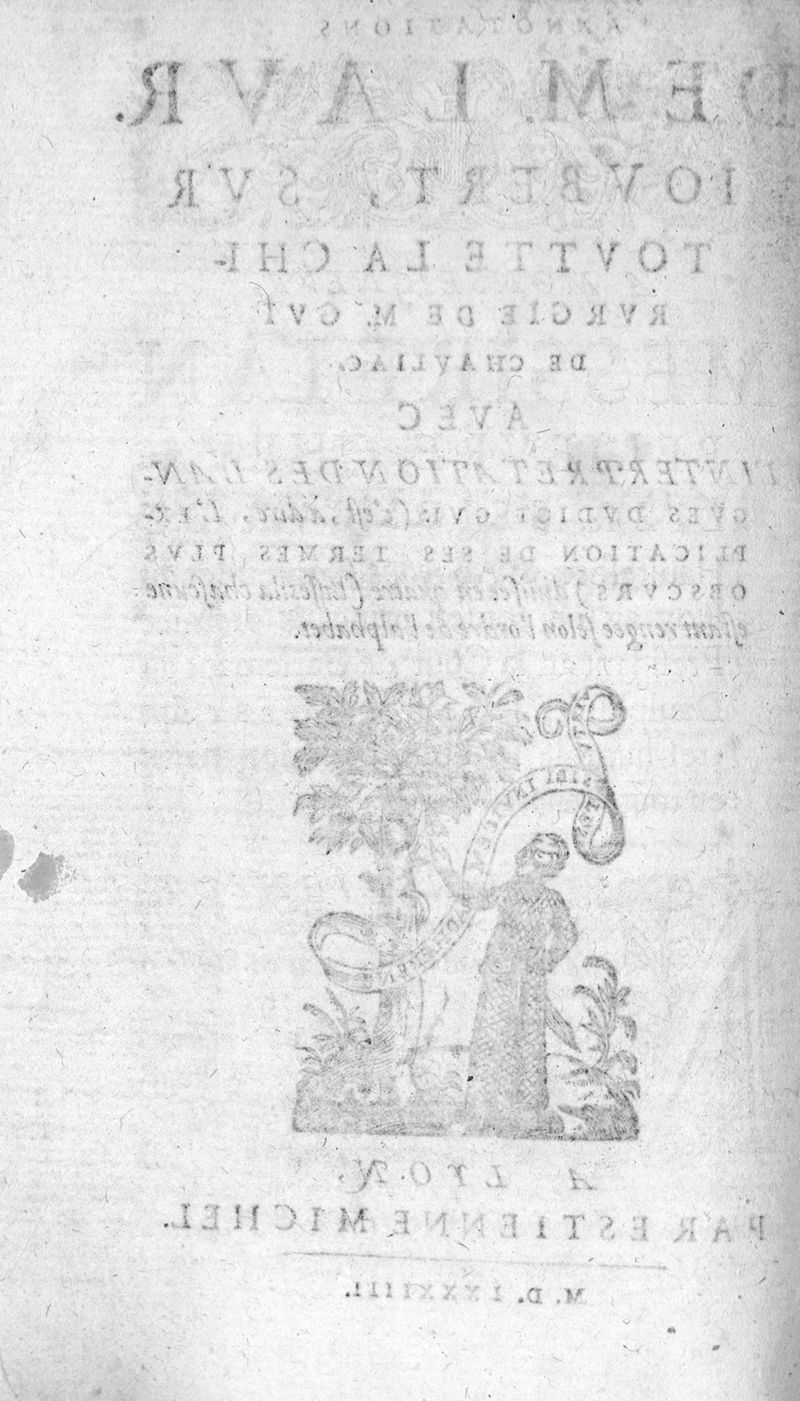 ANNOTATIONS
DE M. LAVR.
IOVBERT, SVR
TOVTTE LA CHI-
RVRGIE DE M. GVI
DE CHAVLIAC.
AVEC
L'INTERPRETATION DES LAN-
GVES DVDICT GVI: (c'est, à dire, L'EX-
PLICATION DE SES TERMES PLVS
OBSCVRS) diuisee en quatre classes: la chascune
estant rengee selon l'ordre de l'alphabet.
SIBI INVICEM
A LYON,
PAR ESTIENNE MICHEL.
M. D. LXXXIIII.